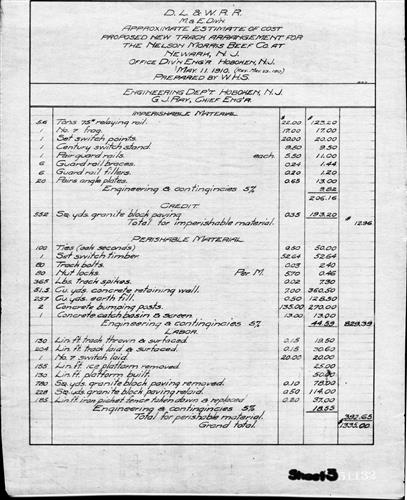 D. L. & W. R. R.
M. & E. Div'n
Approximate Estimate of Cost
Proposed New Track Arrangement for
The Nelson Morris Beef Co. at
Newark, N. J.
Office Div'n Eng'r Hoboken, N.J.
May 11. 1910.
Prepared by W.H.S.
Engineering Dep't Hoboken, N.J.
G. J. Ray, Chief Eng'r.
Imperishable Material
5.6 Tons 75# relaying rail. 22.00 123.20
1 No. 7 frog. 17.00 17.00
1 Set switch points. 20.00 20.00
1 Century switch stand. 9.50 9.50
1 Pair guard rails. each 5.50 11.00
6 Guard rail braces. 0.24 1.44
6 Guard rail fillers. 0.20 1.20
20 Pairs angle plates. 0.65 13.00
Engineering & contingencies 5% 9.82
206.16
Credit
552 Sq. yds. granite block paving 0.35 193.20
Total for imperishable material. $ 12.96
Perishable Material
100 Ties (oak seconds) 0.50 50.00
1 Set switch timber 52.64 52.64
80 Track bolts. 0.03 2.40
80 Nut locks. Per M. 5.70 0.46
365 Lbs. track spikes. 0.02 7.30
51.5 Cu. yds. concrete retaining wall. 7.00 360.50
257 Cu. yds. earth fill. 0.50 128.50
2 Concrete bumping posts. 135.00 270.00
1 Concrete catch basin & screen. 13.00 13.00
Engineering & contingencies 5% 44.59 829.39
Labor.
130 Lin. ft. track thrown & surfaced. 0.15 19.50
204 Lin. ft. track laid & surfaced. 0.15 30.60
1 No. 7 switch laid. 20.00 20.00
155 Lin. ft. ice platform removed. 25.00
130 Lin. ft. platform built. 50.00
780 Sq. yds. granite block paving removed. 0.10 78.00
228 Sq. yds. granite block paving relaid. 0.50 114.00
185 Lin. ft. iron picket fence taken down & replaced 0.20 37.00
Engineering & contingencies 5% 18.55
Total for perishable material. 392.65
Grand total. $1335.00
Sheet 3